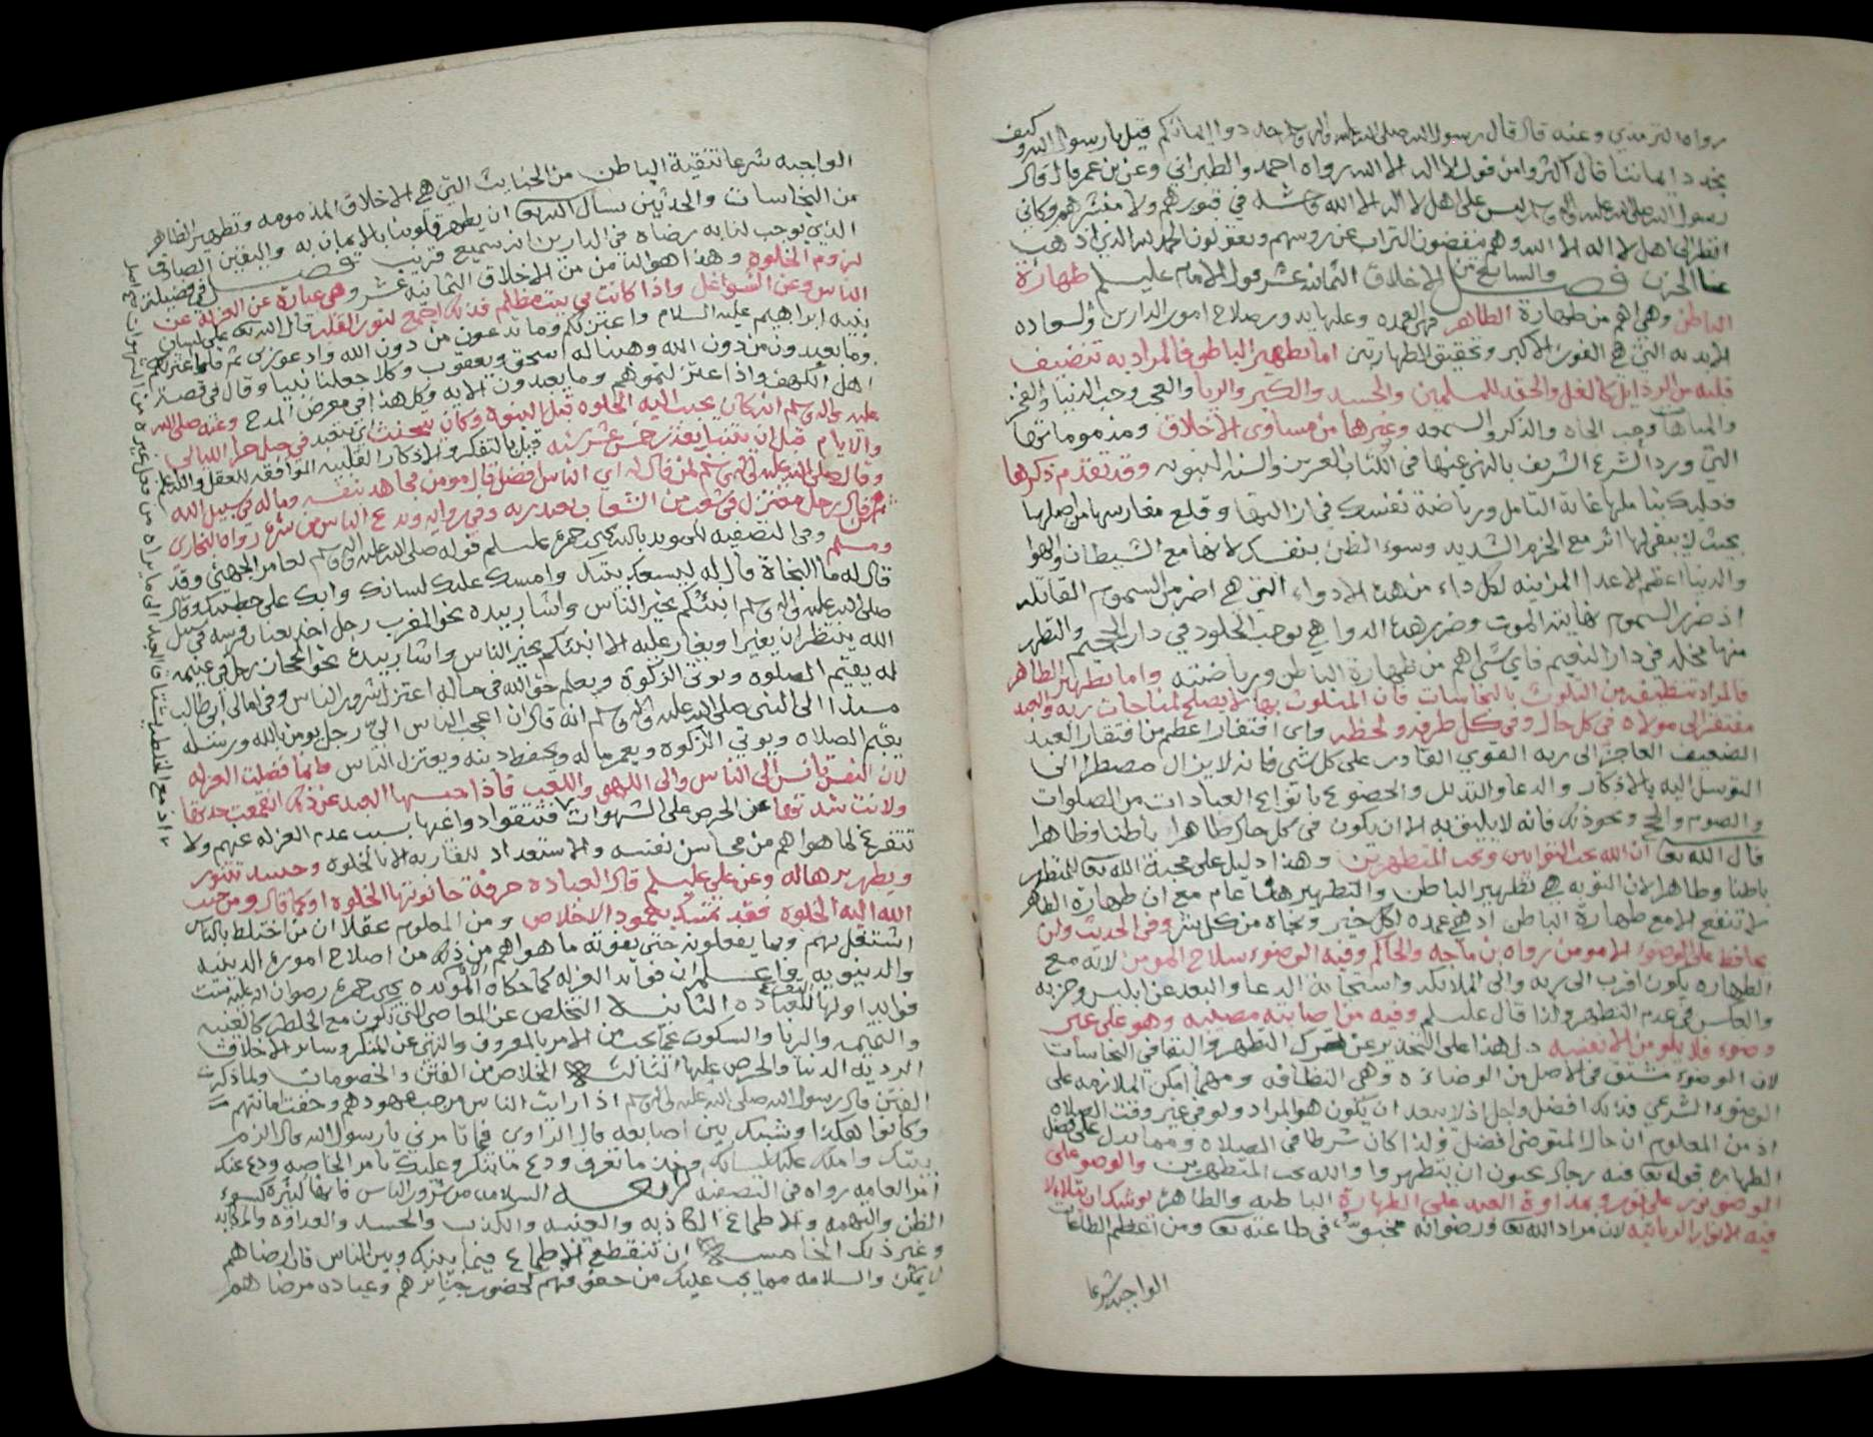 رواه الترمذي وعنه قال قال رسول الله صلى الله عليه واله وسلم جددوا ايمانكم قيل يا رسول الله وكيف
نجدد ايماننا قال اكثروا من قول لا اله الا الله رواه احمد والطبراني وعن بن عمر قال قال
رسول الله صلى الله عليه واله وسلم ليس على اهل لا اله الا الله وحشه في قبورهم ولا منشرهم وكاني
انظر الى اهل لا اله الا الله وهم ينفضون التراب عن روسهم ويقولون الحمد لله الذي اذهب
عنا الحزن فصل والسابع من الاخلاق الثمانيه عشر قول الامام عليلم طهارة
الباطن وهي اهم من طهارة الظاهر فهي العمده وعليها يدور صلاح امور الدارين والسعاده
الابديه التي هي الفوز الاكبر وتحقيق الطهارتين اما تطهير الباطن فالمراد به تنضيف
قلبه من الرذايل كالغل والحقد للمسلمين والحسد والكبر والريا والعجب وحب الدنيا والفخر
والمباهاة وحب الجاه والذكر والسمعه وغيرها من مساوى الاخلاق ومذموماتها
التي ورد الشرع الشريف بالنهي عنها في الكتاب العزيز والسنه النبويه وقد تقدم ذكرها
فعليك بتاملها غاية التامل ورياضة نفسك في ازالتها وقلع مغارسها من اصلها
بحيث لا يبقى لها اثر مع الحزم الشديد وسوء الظن بنفسك لانها مع الشيطان والهوا
والدنيا اعظم الاعدا المزاينه لكل داء من هذه الادواء التي هي اضر من السموم القاتله
اذ ضرر السموم نهايته الموت وضرر هذه الدوا هي توجب الخلود في دار الجحيم والتطهر
منها مخلد في دار النعيم فاي شي اهم من طهارة الباطن ورياضته واما تطهير الظاهر
فالمراد تنظيفه من التلوث بالنجاسات فان المتلوث بها لا يصلح لمناجات ربه والعبد
مفتقر الى مولاه في كل حال وفي كل طرفه ولحظه واي افتقار اعظم من افتقار العبد
الضعيف العاجز الى ربه القوي القادر على كل شي فانه لا يزال مضطرا الى
التوسل اليه بالاذكار والدعا والتذلل والخضوع بانواع العبادات من الصلوات
والصوم والحج ونحو ذلك فانه لا يليق به الا ان يكون في كل حال طاهرا باطنا وظاهرا
قال الله تعا ان الله يحب التوابين ويحب المتطهرين وهذا دليل على محبة الله تعا للمتطهر
باطنا وظاهرا لان التوبه هي تطهير الباطن والتطهير هنا عام مع ان طهارة الظاهر
لا تنفع الا مع طهارة الباطن اذ هي عمده لكل خير ونجاه من كل شر وفي الحديث ولن
يحافظ على الوضو الا مومن رواه بن ماجه والحاكم وفيه الوضوء سلاح المومن لانه مع
الطهاره يكون اقرب الى ربه والى الملائكه واستجابة الدعا والبعد عن ابليس وحزبه
والعكس في عدم التطهر ولذا قال عليلم وفيه من اصابته مصيبه وهو على غير
وضوء فلا يلومن الا نفسه دل هذا على التحذير عن ترك التطهر والبقا في النجاسات
لان الوضوء مشتق في الاصل من الوضاءه وهي النظافه ومهما امكن الملازمه على
الوضوء الشرعي فذلك افضل واجل اذ لا يبعد ان يكون هو المراد ولو في غير وقت الصلاه
اذ من المعلوم ان حال المتوضي افضل ولذا كان شرطا في الصلاه ومما يدل على فضل
الطهاره قوله تعا فيه رجال يحبون ان يتطهروا والله يحب المتطهرين والوضو على
الوضو نور على نور ومداومة العبد على الطهارة الباطنه والظاهره يوشك ان يتلالا
فيه الانوار الربانيه لان مراد الله تعا ورضوانه مخبوء في طاعته تعا ومن اعظم الطاعات
الواجبه شرعا
الواجبه شرعا تنقية الباطن من الخبايث التي هي الاخلاق المذمومه وتطهير الظاهر
من النجاسات والحدثين نسال الله تعا ان يطهر قلوبنا بالايمان به واليقين الصادق
الذي يوجب لنا به رضاه في الدارين انه سميع قريب فصل في فضيلة
لزوم الخلوه وهذا هو الثامن من الاخلاق الثمانيه عشر وهي عبارة عن العزله عن
الناس وعن الشواغل واذا كانت في بيت مظلم فذلك اجمع لنور القلب قال الله تعا على لسان
نبيه ابراهيم عليه السلام واعتزلكم وما تدعون من دون الله وادعو ربي ثم فلما اعتزلهم
وما يعبدون من دون الله وهبنا له اسحق ويعقوب وكلا جعلنا نبيا وقال في قصة
اهل الكهف واذ اعتزلتموهم وما يعبدون الايه وكل هذا في معرض المدح وعنه صلى الله
عليه واله وسلم انه كان يحبب اليه الخلوه قبل النبوه وكان يتحنث اي يتعبد في جبل حرا الليالي
والايام قبل ان يتنبا بقدر خمس عشر سنه قيل بالتفكر والاذكار القلبيه الموافقه للعقل والله اعلم
وقال صلى الله عليه واله وسلم لمن قال له اي الناس افضل قال مومن مجاهد بنفسه وماله في سبيل الله
ثم من قال رجل معتزل في شعب من الشعاب يعبد ربه وفي روايه ويدع الناس من شره رواه البخاري
ومسلم وفي التصفيه للمويد بالله يحيى بن حمزه عليلم قوله صلى الله عليه واله وسلم لعامر الجهني وقد
قال له ما النجاة قال له ليسعك بيتك وامسك عليك لسانك وابك على خطيتك وقال
صلى الله عليه واله وسلم الا انبئكم بخير الناس واشار بيده نحو المغرب رجل اخذ بعنان فرسه في سبيل
الله ينتظر ان يغير او يغار عليه الا انبئكم بخير الناس واشار بيده نحو الحجاز رجل في غنيمه
له يقيم الصلوه ويوتي الزكوة ويعلم حق الله في ماله اعتزل شرور الناس وفي امالي ابي طالب
مسندا الى النبي صلى الله عليه واله وسلم انه قال ان اعجب الناس الي رجل يومن بالله ورسله
يقيم الصلاه ويوتي الزكوه ويعمر ماله ويحفظ دينه ويعتزل الناس وانما فضلت العزله
لان النفس تانس الى الناس والى اللهو واللعب فاذا حبسها العبد عن ذلك انقمعت حدتها
ولانت شدتها عن الحرص على الشهوات فتتقو دواعيها بسبب عدم العزله عنهم ولا
تتفرغ لما هو اهم من محاسن نفسه والاستعداد للقا ربه الا بالخلوه وحينئذ تتنور
ويطهر حاله وعن علي عليلم قال العباده حرفة حانوتها الخلوه او كما قال ومن حبب
الله اليه الخلوه فقد تمسك بعمود الاخلاص ومن المعلوم عقلا ان من اختلط بالناس
اشتغل بهم وبما يفعلونه حتى يفوته ما هو اهم من ذلك من اصلاح اموره الدينيه
والدنيويه واعلم ان فوائد العزله كما حكاه المويد بالله يحيى بن حمزه رضوان الله عليه ست
فوايد اولها التفرغ للعباده الثانيه التخلص عن المعاصي التي تكون مع الخلطه كالغيبه
والنميمه والريا والسكوت عما يجب من الامر بالمعروف والنهي عن المنكر وساير الاخلاق
الرديه الدنيا والحرص عليها الثالثه الخلاص من الفتن والخصومات ولما ذكر
الفتن قال رسول الله صلى الله عليه واله وسلم اذا رايت الناس مرجت عهودهم وخفت اماناتهم
وكانوا هكذا وشبك بين اصابعه قال الراوي فما تامرني يا رسول الله قال الزم
بيتك واملك عليك لسانك وخذ ما تعرف ودع ما تنكر وعليك بامر الخاصه ودع عنك
امر العامه رواه في التصفيه الرابعه السلامه من شرور الناس فانها كثيره كسوء
الظن والتهمه والاطماع الكاذبه والغيبه والكذب والحسد والعداوه والمكايد
وغير ذلك الخامسه ان تنقطع الاطماع فيما بينك وبين الناس فان رضاهم
لا يمكن والسلامه مما يجب عليك من حقوقهم لحضور جنايزهم وعيادة مرضاهم